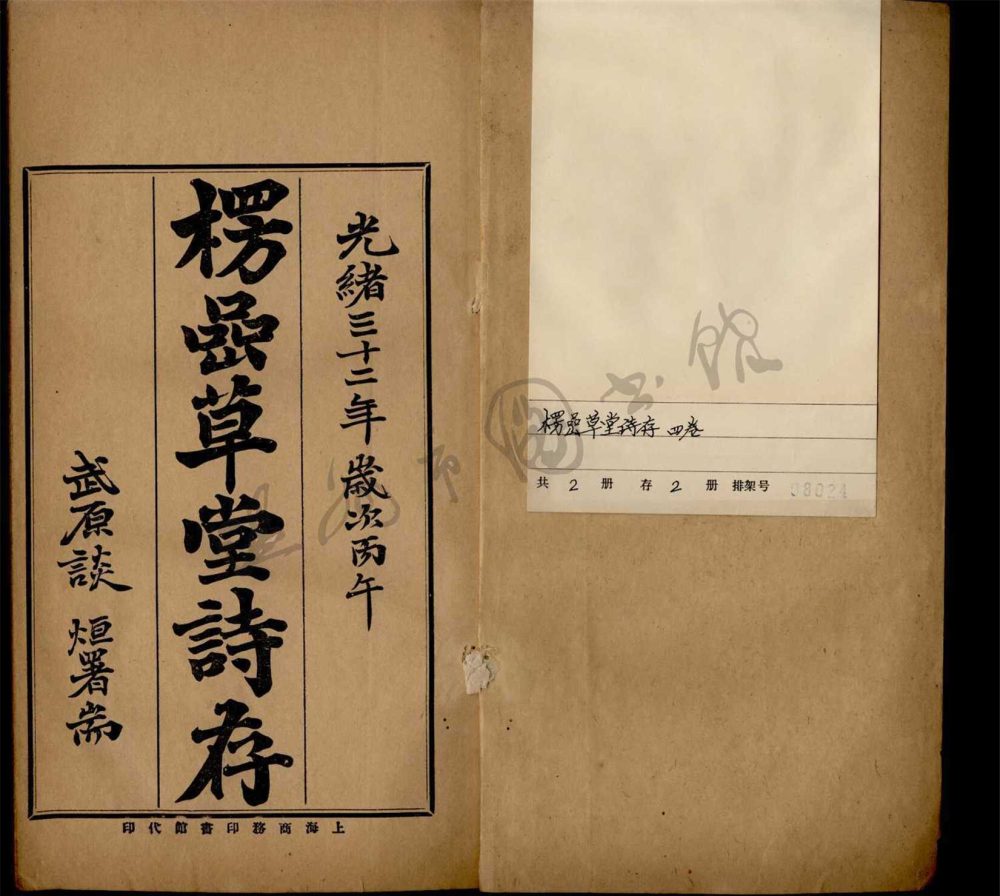 楞嵒草堂詩存 四卷
共 2 册 存 2 册 排架号 08024
光緒三十二年 歲次丙午
楞嵒草堂詩存
武原談 烜署耑
上海商務印書館代印